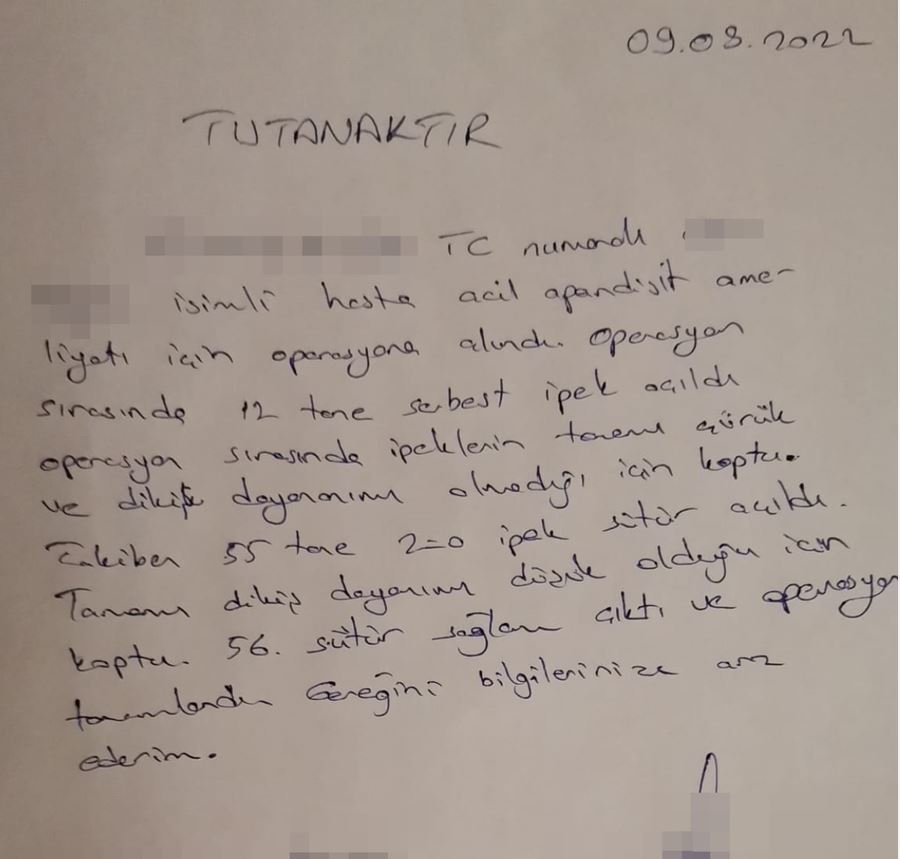 09.08.2022
TUTANAKTIR
TC numaralı
isimli hasta acil apandisit ame-
liyatı için operasyona alındı. Operasyon
sırasında 12 tane serbest ipek açıldı
operasyon sırasında ipeklerin tamamı çürük
ve dikiş dayanımı olmadığı için koptu.
Takiben 55 tane 2=0 ipek sütür açıldı.
Tamamı dikiş dayanımı düşük olduğu için
koptu. 56. sütür sağlam çıktı ve operasyon
tamamlandı Gereğini bilgilerinize arz
ederim.